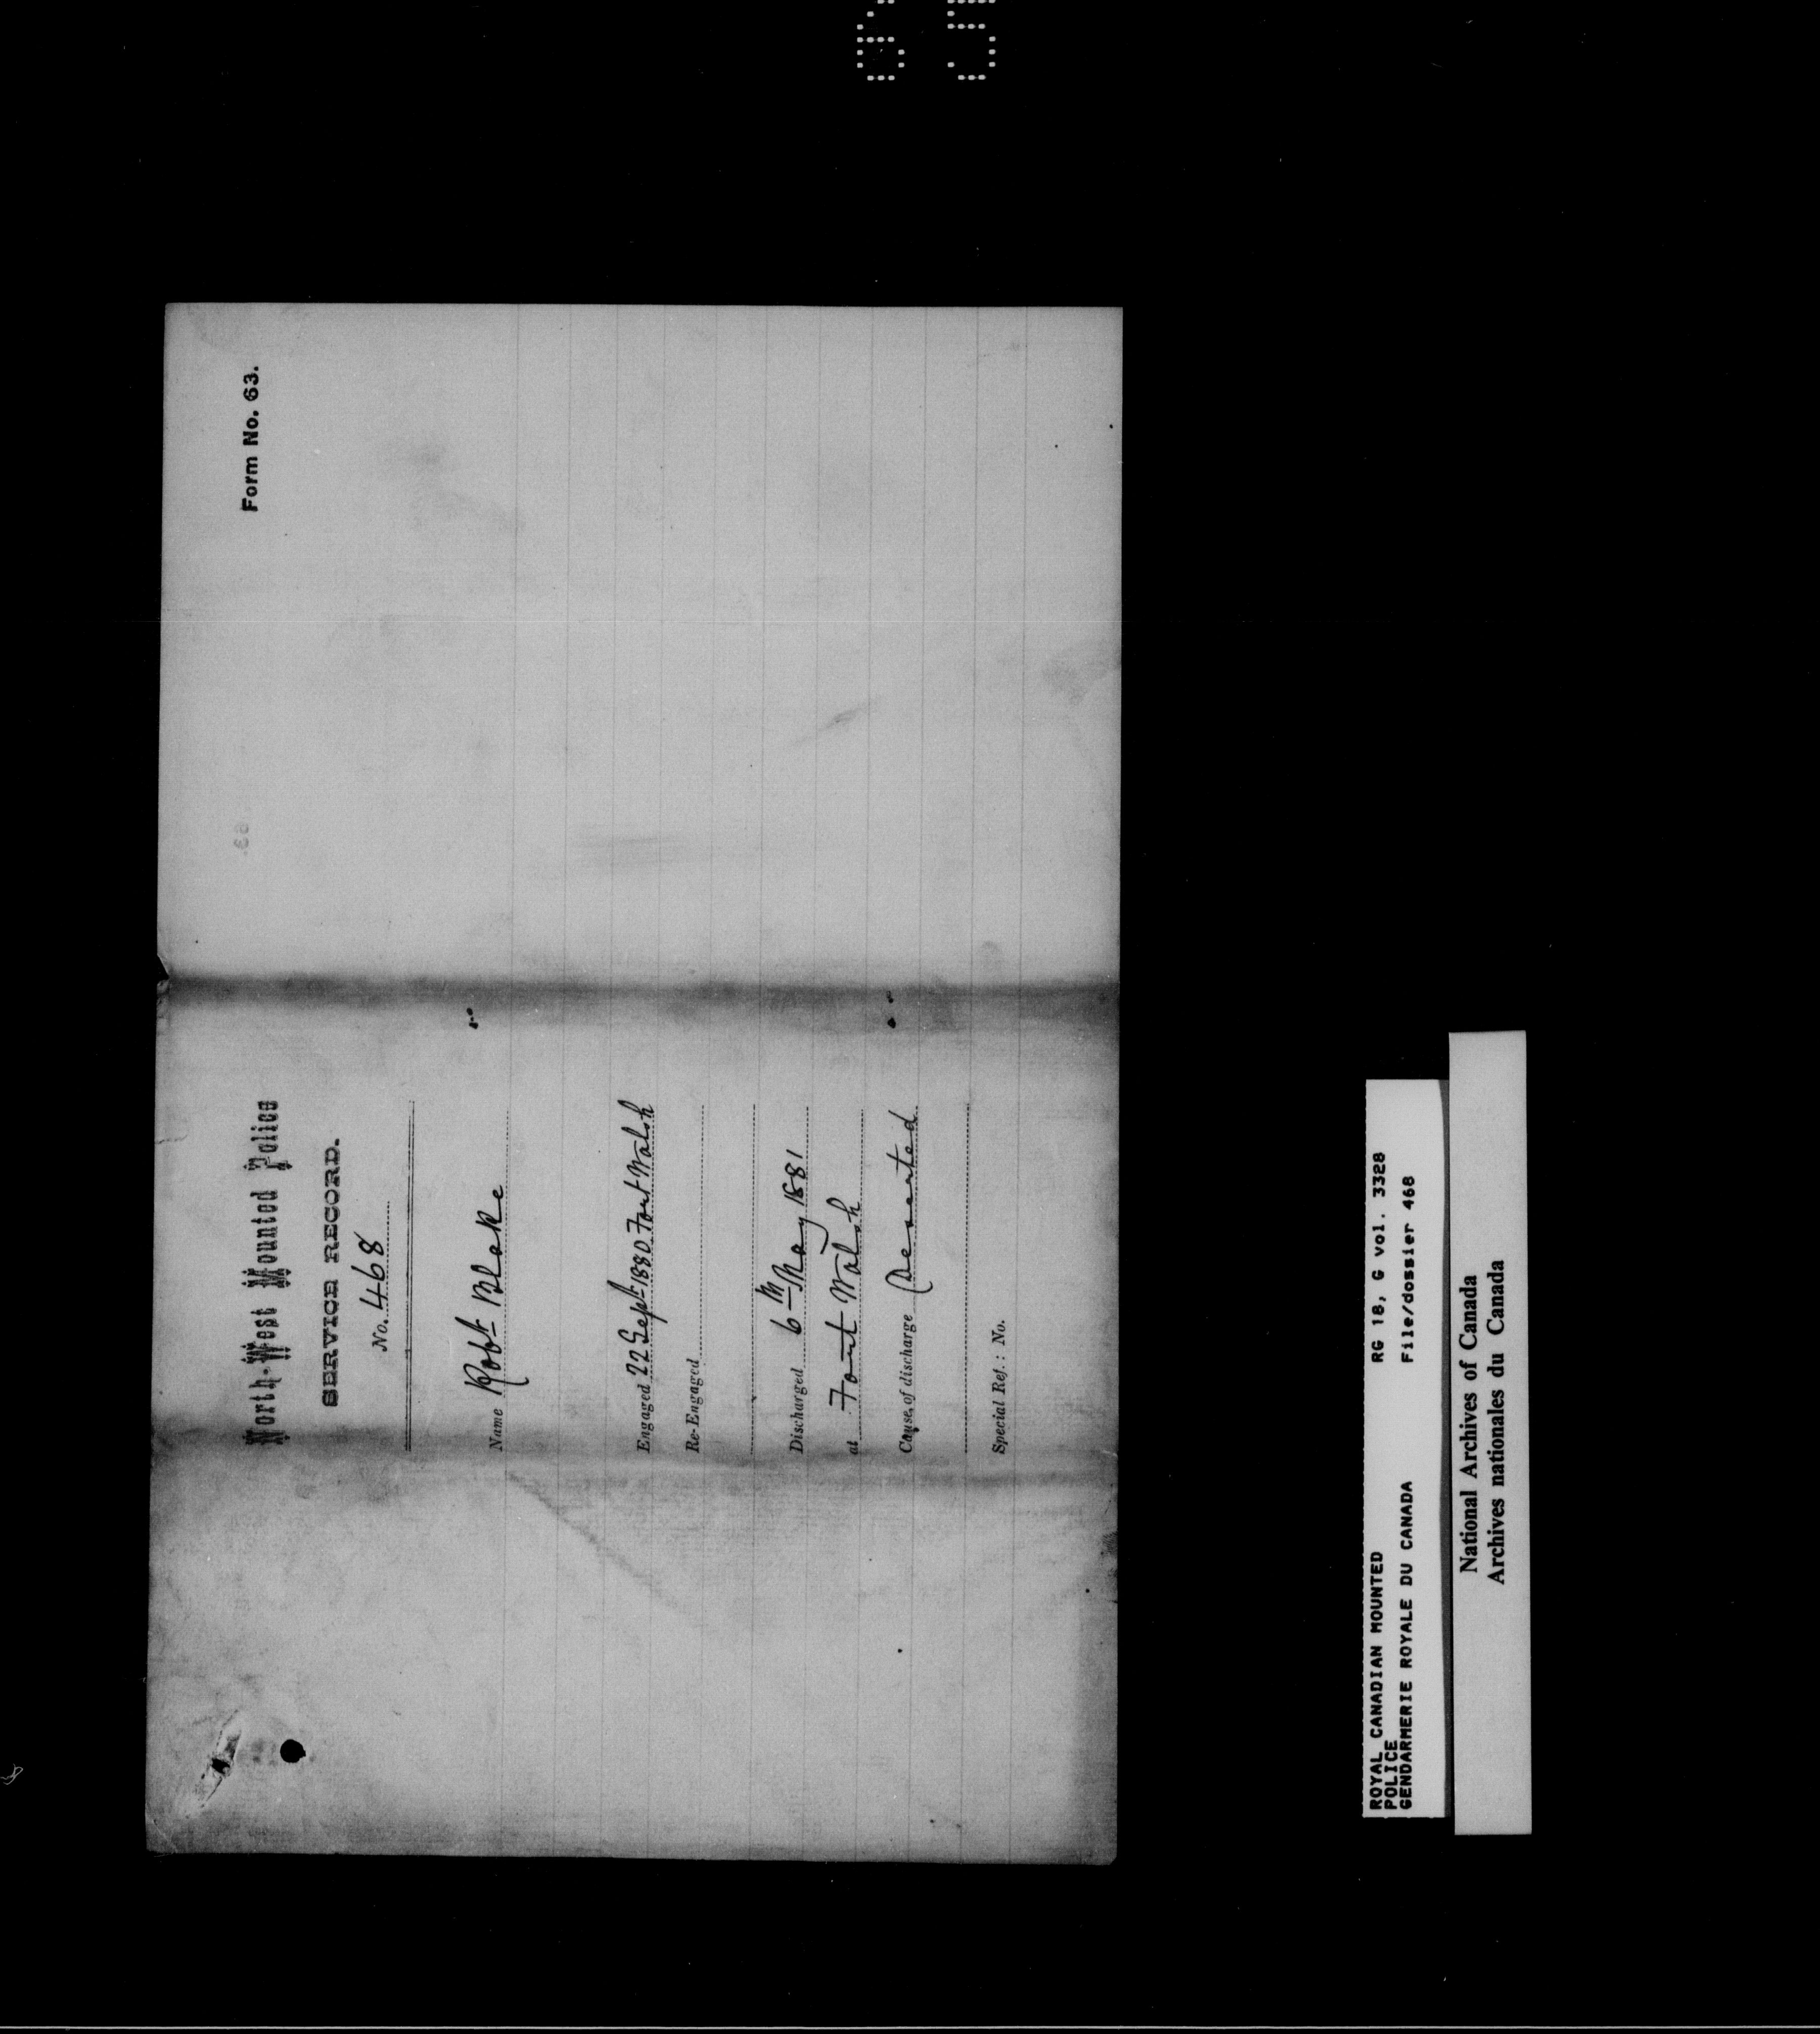 Form No. 63.
North-West Mounted Police
SERVICE RECORD.
No. 468
Name Robt Blake
Engaged 22 Sept 1880 Fort Walsh
Re-Engaged
Discharged 6th May 1881
at Fort Walsh
Cause of discharge Deserted
Special Ref.: No.
ROYAL CANADIAN MOUNTED RG 18, G vol. 3328
POLICE
GENDARMERIE ROYALE DU CANADA File/dossier 468
National Archives of Canada
Archives nationales du Canada